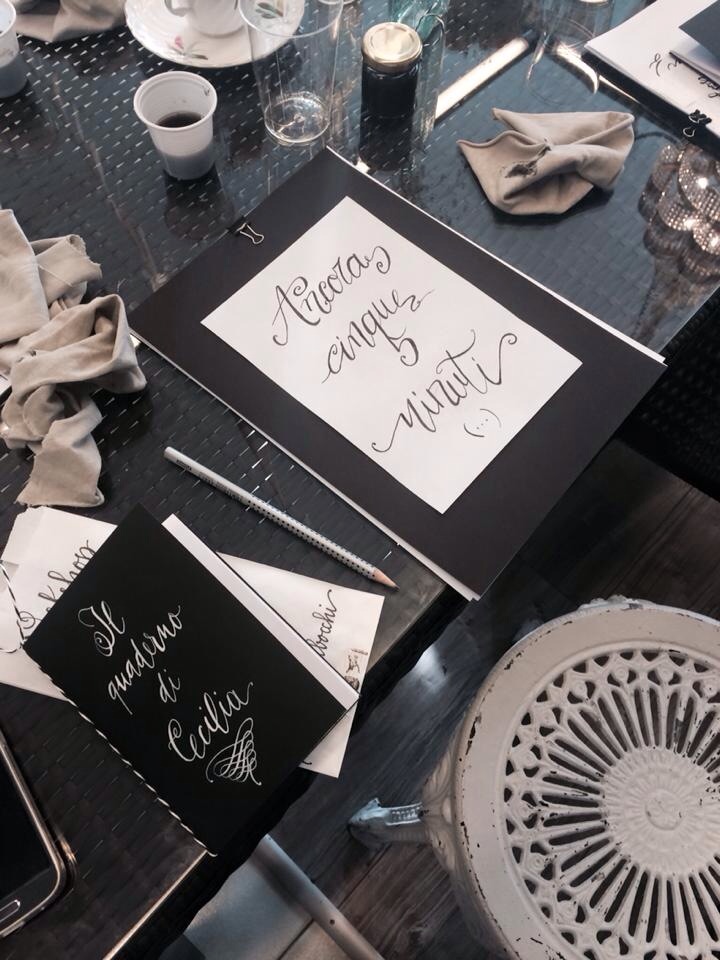 Ancora
cinque
5
minuti
(...)
Il
quaderno
di
Cecilia